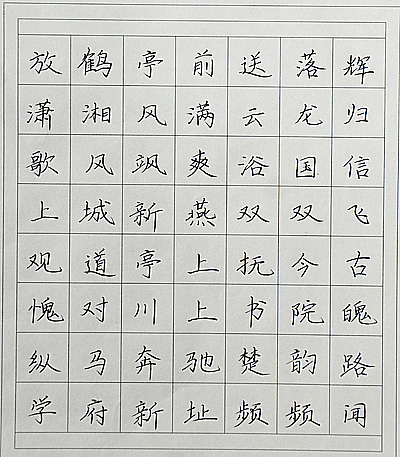 放鹤亭前送落辉
潇湘风满云龙归
歌风飒爽浴国信
上城新燕双双飞
观道亭上抚今古
愧对川上书院魄
纵马奔驰楚韵路
学府新址频频闻